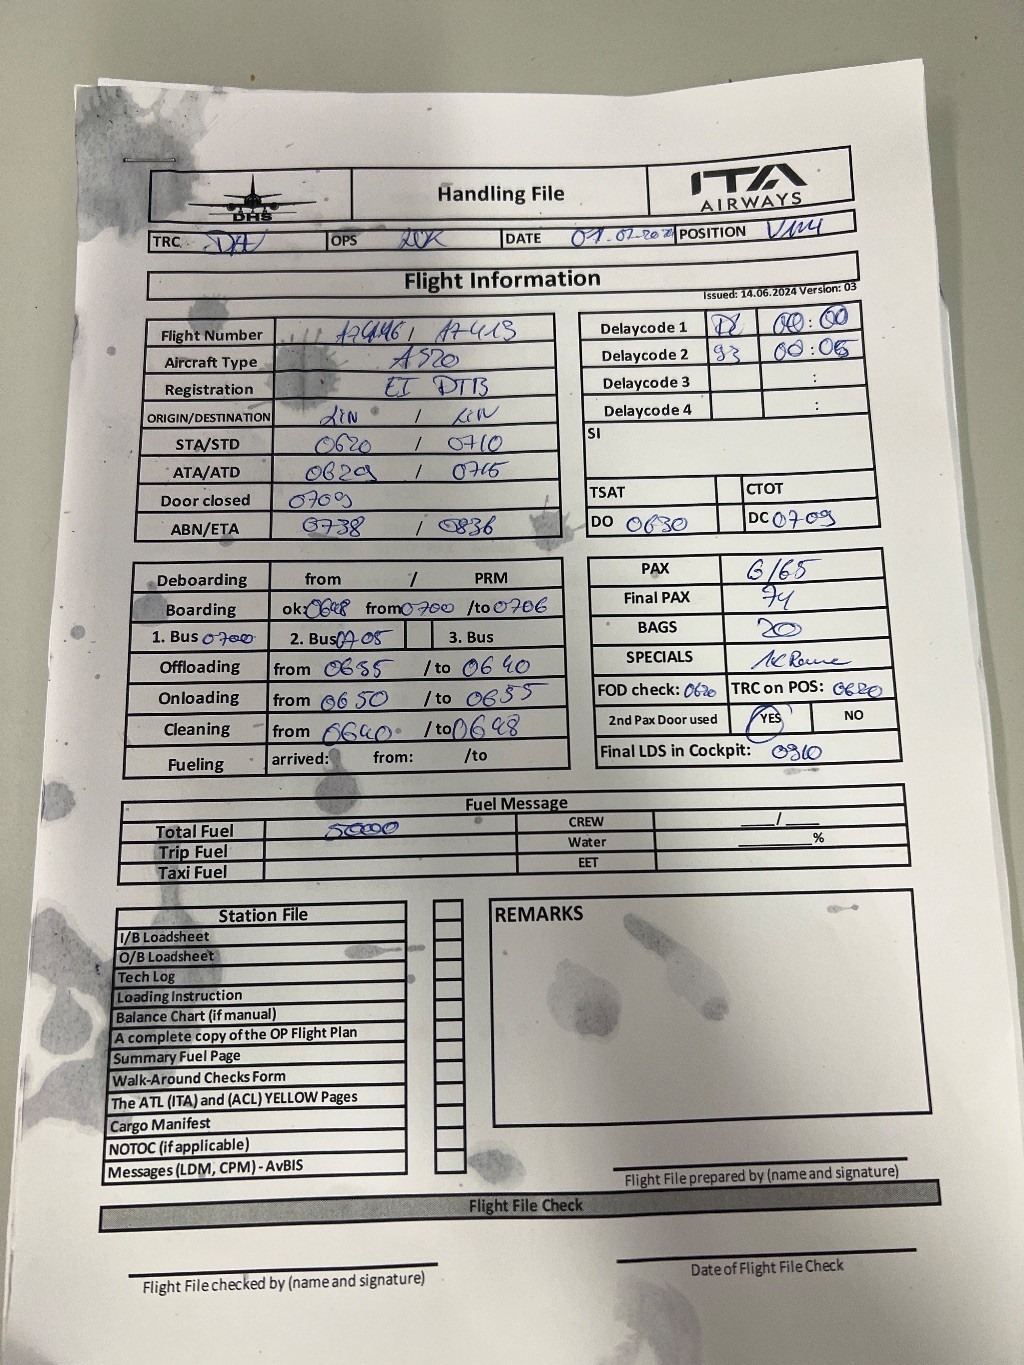 DHS
Handling File
ITA
AIRWAYS
TRC
OPS
DATE
POSITION
Flight Information
Issued: 14.06.2024 Version: 03
Flight Number /
Aircraft Type A320
Registration EI DTB
ORIGIN/DESTINATION LIN / LIN
STA/STD 0620 / 0710
ATA/ATD 0629 / 0715
Door closed 0709
ABN/ETA 0738 / 0836
Delaycode 1 00:00
Delaycode 2 93 00:05
Delaycode 3 :
Delaycode 4 :
SI
TSAT CTOT
DO 0630 DC 0709
Deboarding from / PRM
Boarding ok: 0648 from 0700 /to 0706
1. Bus 0700 2. Bus 0705 3. Bus
Offloading from 0635 /to 0640
Onloading from 0650 /to 0655
Cleaning from 0640 /to 0648
Fueling arrived: from: /to
PAX 6/65
Final PAX 74
BAGS 20
SPECIALS
FOD check: 0620 TRC on POS: 0620
2nd Pax Door used YES NO
Final LDS in Cockpit:
Fuel Message
Total Fuel 5000 CREW ____/____
Trip Fuel Water ________%
Taxi Fuel EET
Station File
I/B Loadsheet
O/B Loadsheet
Tech Log
Loading Instruction
Balance Chart (if manual)
A complete copy of the OP Flight Plan
Summary Fuel Page
Walk-Around Checks Form
The ATL (ITA) and (ACL) YELLOW Pages
Cargo Manifest
NOTOC (if applicable)
Messages (LDM, CPM) - AvBIS
REMARKS
Flight File prepared by (name and signature)
Flight File Check
Flight File checked by (name and signature)
Date of Flight File Check